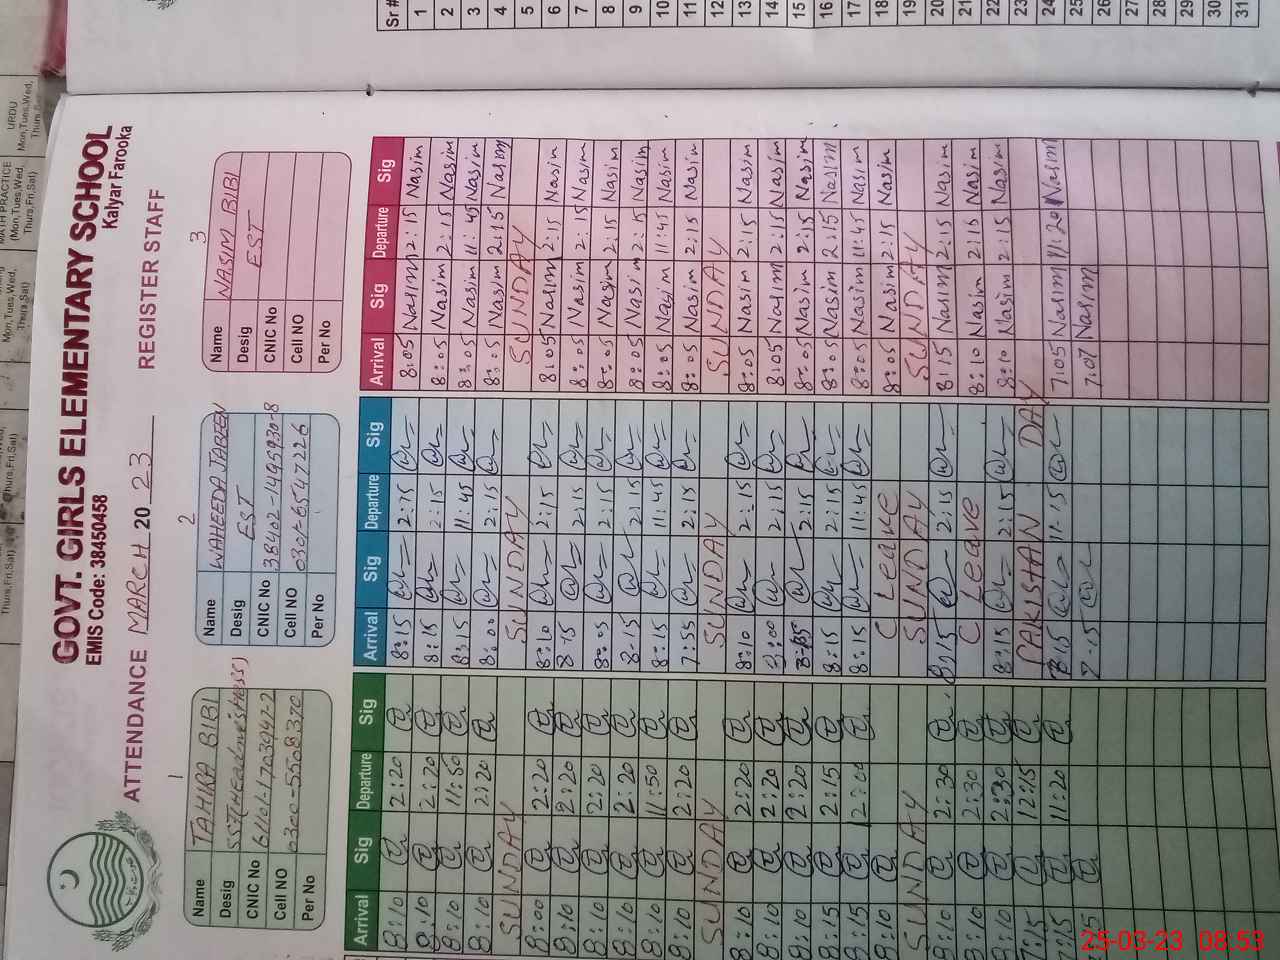 GOVT. GIRLS ELEMENTARY SCHOOL
EMIS Code: 38450458
Kalyar Farooka
ATTENDANCE MARCH 2023 REGISTER STAFF
1
Name TAHIRA BIBI
Desig SST(Headmistress)
CNIC No
Cell NO 0300-5508320
Per No
2
Name WAHEEDA JABEEN
Desig EST
CNIC No 38402-1495930-8
Cell NO 0301-6547226
Per No
3
Name NASIM BIBI
Desig EST
CNIC No
Cell NO
Per No
Arrival Sig Departure Sig Arrival Sig Departure Sig Arrival Sig Departure Sig
8:10 2:20 8:15 2:15 8:05 Nasim 2:15 Nasim
8:10 2:20 8:15 2:15 8:05 Nasim 2:15 Nasim
8:10 11:50 8:15 11:45 8:05 Nasim 11:45 Nasim
8:10 2:20 8:00 2:15 8:05 Nasim 2:15 Nasim
SUNDAY SUNDAY SUNDAY
8:00 2:20 8:10 2:15 8:05 Nasim 2:15 Nasim
8:10 2:20 8:15 2:15 8:05 Nasim 2:15 Nasim
8:10 2:20 8:05 2:15 8:05 Nasim 2:15 Nasim
8:10 2:20 8:15 2:15 8:05 Nasim 2:15 Nasim
8:10 11:50 8:15 11:45 8:05 Nasim 11:45 Nasim
8:10 2:20 7:55 2:15 8:05 Nasim 2:15 Nasim
SUNDAY SUNDAY SUNDAY
8:10 2:20 8:10 2:15 8:05 Nasim 2:15 Nasim
8:10 2:20 8:00 2:15 8:05 Nasim 2:15 Nasim
8:10 2:20 2:15 8:05 Nasim 2:15 Nasim
8:15 2:15 8:15 2:15 8:05 Nasim 2:15 Nasim
8:15 12:00 8:15 11:45 8:05 Nasim 11:45 Nasim
8:10 C Leave 8:05 Nasim 2:15 Nasim
SUNDAY SUNDAY SUNDAY
8:10 2:30 8:15 2:15 8:15 Nasim 2:15 Nasim
8:10 2:30 C Leave 8:10 Nasim 2:15 Nasim
8:10 2:30 8:15 2:15 8:10 Nasim 2:15 Nasim
7:15 12:15 PAKISTAN DAY
7:15 11:20 11:15 7:05 Nasim 11:20 Nasim
7:15 7:07 Nasim
Sr #
1
2
3
4
5
6
7
8
9
10
11
12
13
14
15
16
17
18
19
20
21
22
23
24
25
26
27
28
29
30
31
URDU
Mon,Tues,Wed,
MATH PRACTICE
(Mon,Tues,Wed,
Thurs,Fri,Sat)
Mon,Tues,Wed,
Thurs,Sat)
Thurs,Fri,Sat)
Thurs,Fri,Sat)
25-03-23 08:53